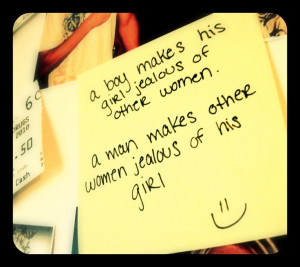 a boy makes his
girl jealous of
other women.
a man makes other
women jealous of his
girl
6
2010
-50
Cash